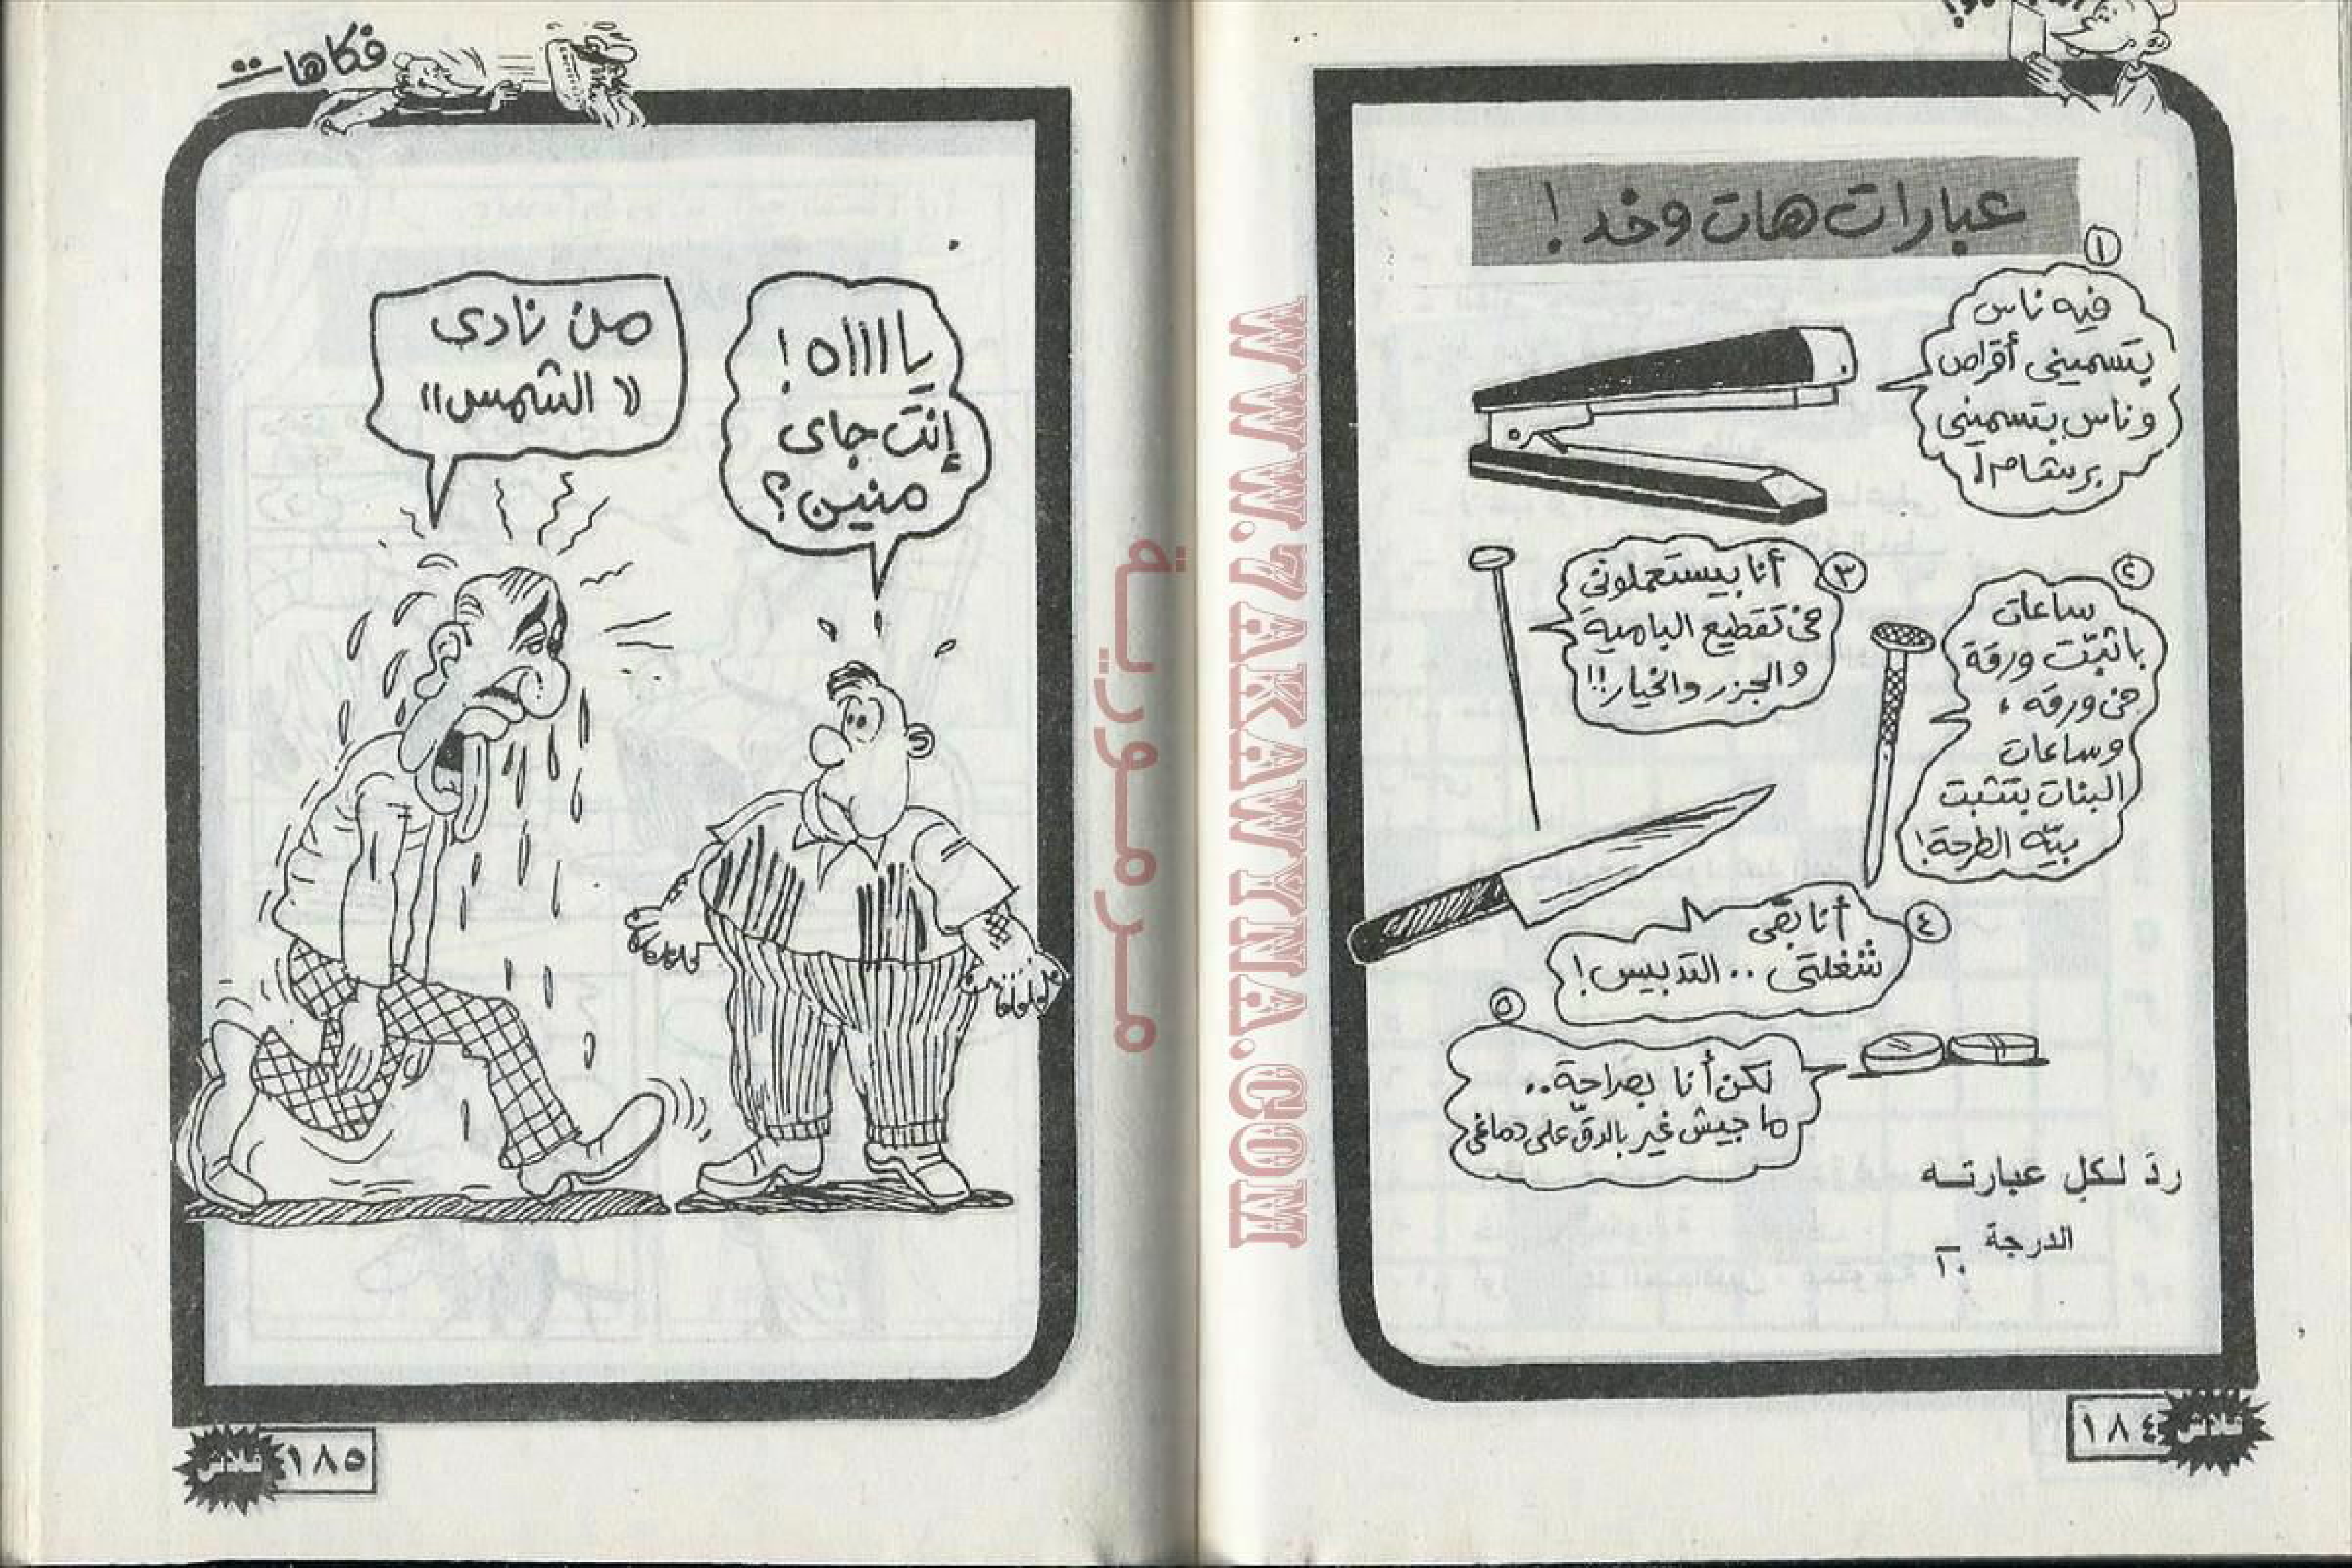 عبارات هات وخد!
١
فيه ناس
بتسميني أقراص
وناس بتسميني
برشام!
٢
ساعات
باثبّت ورقة
في ورقة،
وساعات
البنات بتثبت
بيّه الطرحة!
٣
أنا بيستعملوني
في تقطيع البامية
والجزر والخيار!!
٤
أنا بقى
شغلتي.. التدبيس!
٥
لكن أنا بصراحة..
ما جيش غير بالدقّ على دماغي
ردّ لكل عبارته
الدرجة ١٠
١٨٤
فلاش
فكاهات
ياااااه!
إنت جاى
منين؟
من نادى
«الشمس»
١٨٥
فلاش
مرمورية
WWW.7AKAWYNA.COM